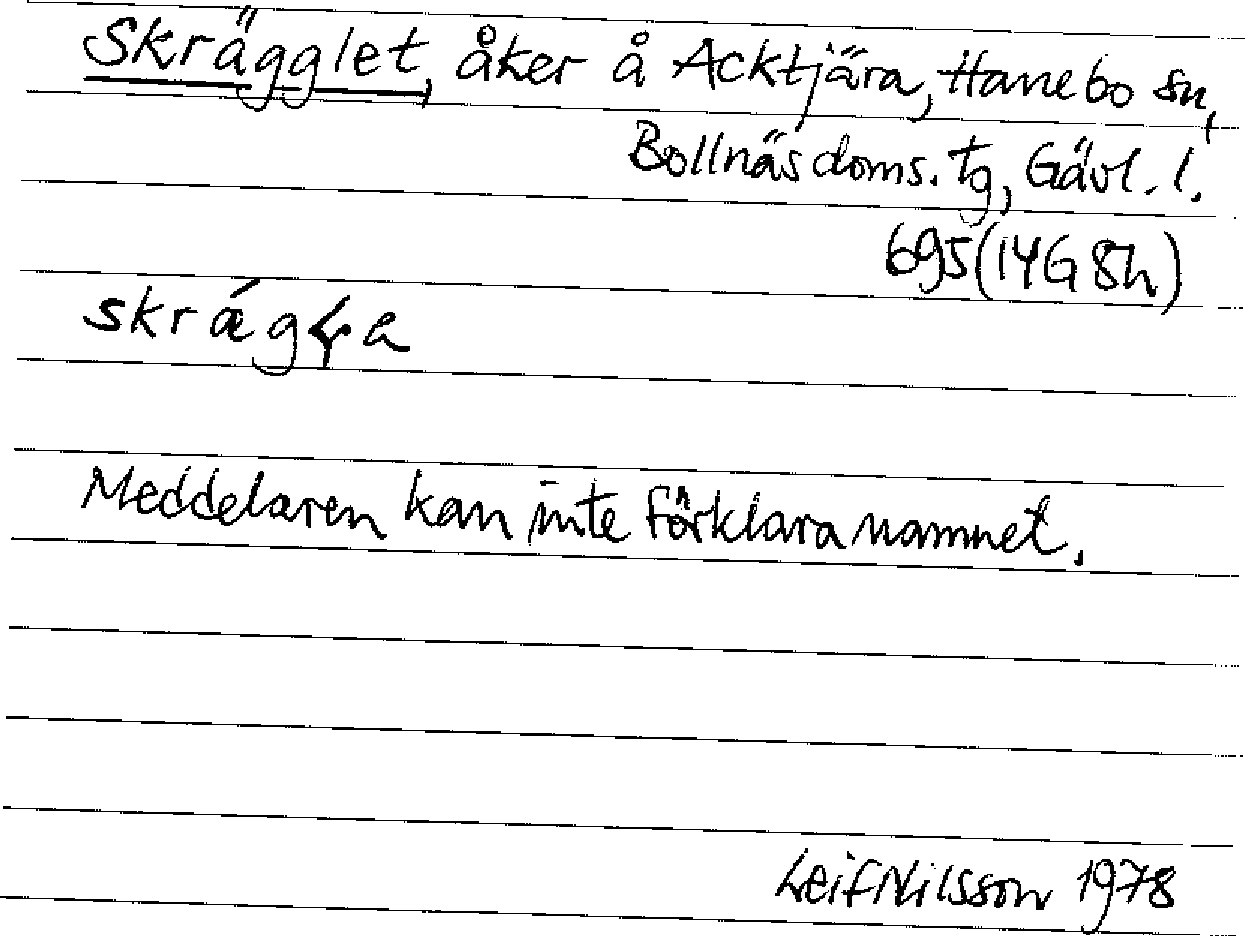 Skrägglet, åker å Acktjära, Hanebo sn,
Bollnäs doms. tg, Gävl. l.
695 (14G 8h)
Meddelaren kan inte förklara namnet.
Leif Nilsson 1978